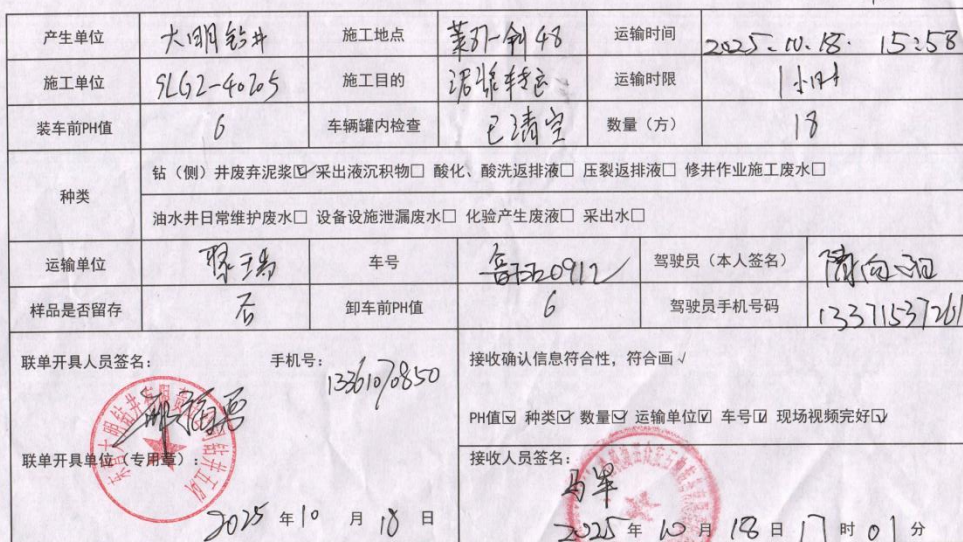 产生单位 大明钻井 施工地点 莱31-斜48 运输时间 2025.10.18. 15:58
施工单位 SLGZ-40205 施工目的 泥浆转运 运输时限 1小时
装车前PH值 6 车辆罐内检查 已清空 数量（方） 18
种类 钻（侧）井废弃泥浆☑ 采出液沉积物□ 酸化、酸洗返排液□ 压裂返排液□ 修井作业施工废水□
油水井日常维护废水□ 设备设施泄漏废水□ 化验产生废液□ 采出水□
运输单位 车号 0912 驾驶员（本人签名）
样品是否留存 否 卸车前PH值 6 驾驶员手机号码 13371537261
联单开具人员签名： 手机号： 13361070850
接收确认信息符合性，符合画√
PH值☑ 种类☑ 数量☑ 运输单位☑ 车号☑ 现场视频完好☑
联单开具单位（专用章）：
2025 年 10 月 18 日
接收人员签名：
2025 年 10 月 18 日 17 时 01 分